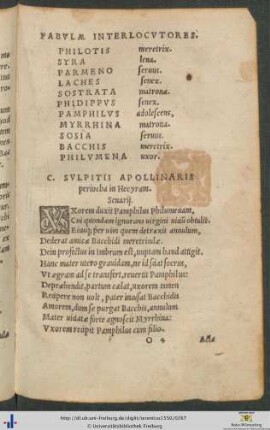 FABVLAE INTERLOCVTORES.
PHILOTIS meretrix.
SYRA lena.
PARMENO seruus.
LACHES senex.
SOSTRATA matrona.
PHIDIPPVS senex.
PAMPHILVS adolescens,
MYRRHINA matrona.
SOSIA seruus.
BACCHIS meretrix.
PHILVMENA vxor.
C. SVLPITII APOLLINARIS
periocha in Hecyram.
Senarij.
VXorem duxit Pamphilus Philumenam,
Cui quondam ignorans virgini vitiũ obtulit.
Eiusq; per vim quem detraxit annulum,
Dederat amicæ Bacchidi meretriculæ.
Dein profectus in Imbrum est, nuptam haud attigit.
Hanc mater vtero grauidam, ne id sciat socrus,
Vt ægram ad se transfert, reuertit Pamphilus:
Deprehendit, partum celat, vxorem tamen
Recipere non volt, pater incusat Bacchidis
Amorem, dum se purgat Bacchis, annulum
Mater vitiatæ forte agnoscit Myrrhina:
Vxorem recipit Pamphilus cum filio.
O 4
http://dl.ub.uni-freiburg.de/diglit/terentius1550/0287
© Universitätsbibliothek Freiburg